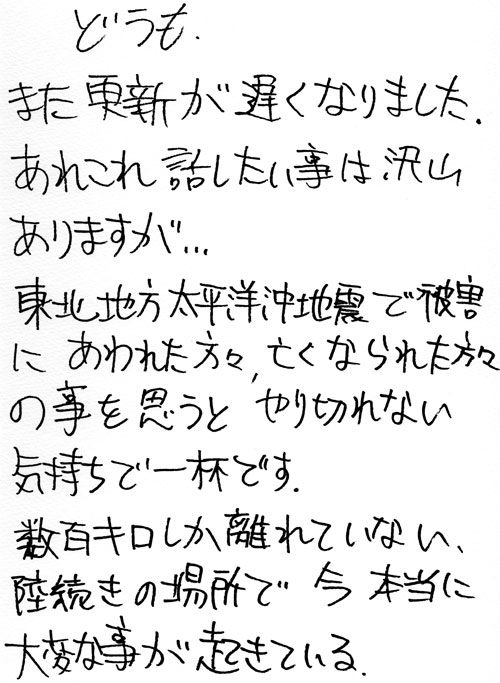 どうも.
また更新が遅くなりました.
あれこれ話したい事は沢山
ありますが...
東北地方太平洋沖地震で被害
にあわれた方々,亡くなられた方々
の事を思うとやり切れない
気持ちで一杯です.
数百キロしか離れていない、
陸続きの場所で今本当に
大変な事が起きている.